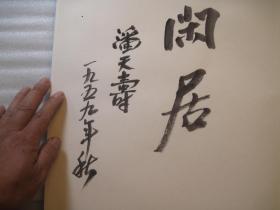 閑居
潘天壽
一九五九年秋